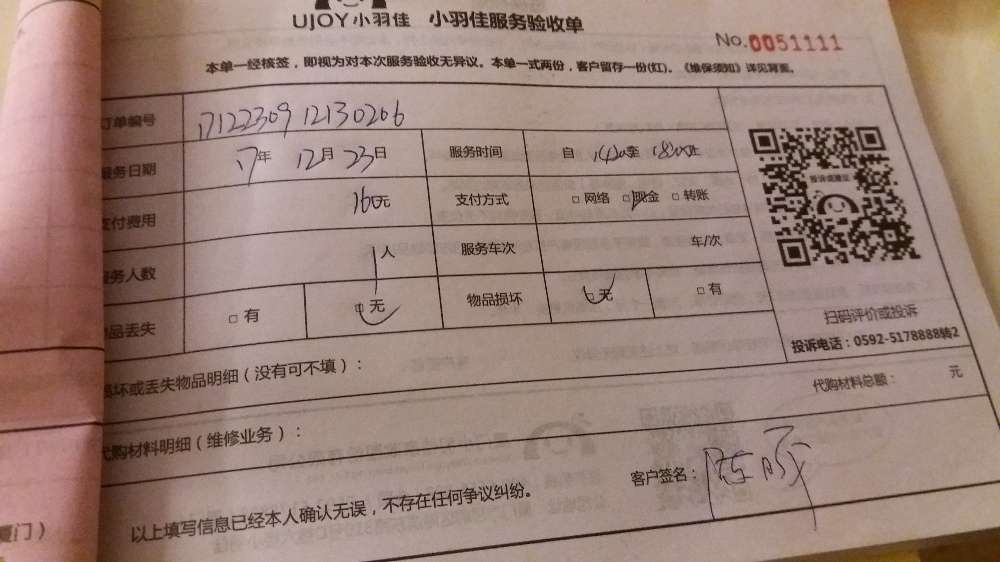 UJOY小羽佳 小羽佳服务验收单
No.0051111
本单一经核签，即视为对本次服务验收无异议。本单一式两份，客户留存一份(红)。《维保须知》详见背面。
订单编号 1712230912130206
服务日期 17年 12月 23日 服务时间 自 至 止
支付费用 160元 支付方式 □网络 □现金 □转账
服务人数 1人 服务车次 车/次
物品丢失 □有 □无 物品损坏 □无 □有
投诉或建议
扫码评价或投诉
投诉电话：0592-5178888转2
损坏或丢失物品明细（没有可不填）：
代购材料明细（维修业务）： 代购材料总额： 元
以上填写信息已经本人确认无误，不存在任何争议纠纷。 客户签名：陈
厦门）